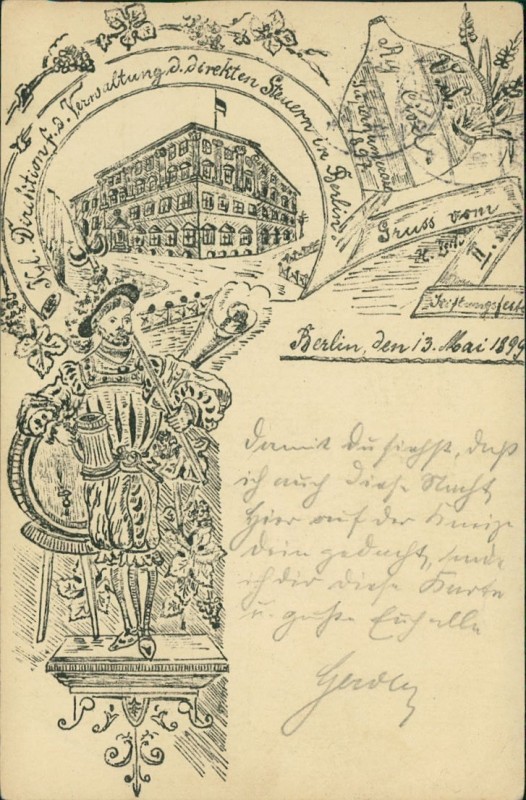 Kgl. Direktion f. d. Verwaltung d. direkten Steuern in Berlin.
Gruss vom
II.
Stiftungsfeste
Berlin, den 13. Mai 1899
Damit Du siehst, daß
ich auch diese Nacht,
hier auf der Kneipe
dein gedacht, sende
ich dir diese Karte
u. grüße Euch alle